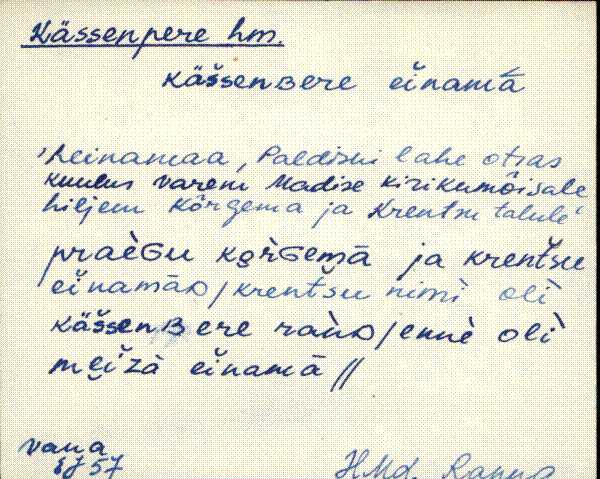 Kässenpere hm.
käšsenʙere eìnamā̀
'heinamaa, Paldiski lahe otsas
kuulus varem Madise kirikumõisale
hiljem Kõrgema ja Krentsu talule'
praèɢu kɵ̭̀rɢemā ja krentšu
eìnamāᴅ / krentšu nimì olì
käšsenʙere raǹᴅ / ennè olì
mei̭zà eìnamā //
vana
EJ 57
HMd. Ranna